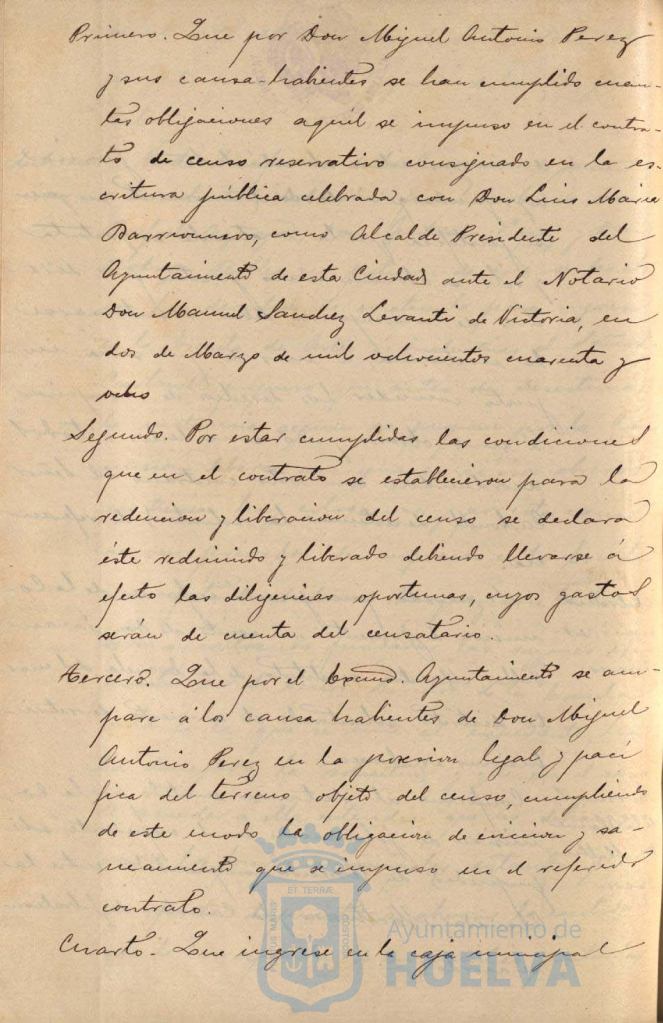 Primero. Que por Don Miguel Antonio Perez
y sus causa-habientes se han cumplido cuan-
tas obligaciones aquél se impuso en el contra-
to de censo reservativo consignado en la es-
critura pública celebrada con Don Luis Maria
Barrionuevo, como Alcalde Presidente del
Ayuntamiento de esta Ciudad ante el Notario
Don Manuel Sanchez Levanti de Victoria, en
dos de Marzo de mil ochocientos cuarenta y
ocho
Segundo. Por estar cumplidas las condiciones
que en el contrato se establecieron para la
redencion y liberacion del censo se declara
éste redimido y liberado debiendo llevarse á
efecto las diligencias oportunas, cuyos gastos
serán de cuenta del censatario.
Tercero. Que por el Excmo. Ayuntamiento se am-
pare á los causa habientes de Don Miguel
Antonio Perez en la posesion legal y pací
fica del terreno objeto del censo, cumpliendo
de este modo la obligacion de eviccion y sa-
neamiento que se impuso en el referido
contrato.
Cuarto. Que ingrese en la caja municipal
Ayuntamiento de
HUELVA